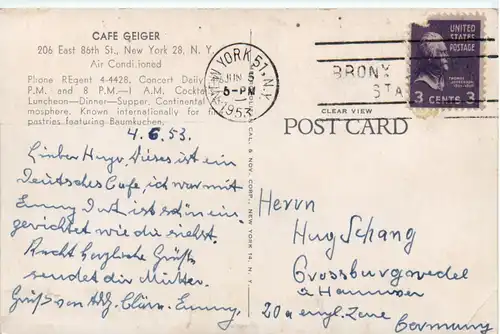 CAFE GEIGER
206 East 86th St., New York 28, N. Y.
Air Condi.ioned
Phone REgent 4-4428, Concert Daily
P.M. and 8 P.M.—1 A.M. Cockta
Luncheon—Dinner—Supper. Continental
mosphere. Known internationally for
pastries featuring Baumkuchen.
4.6.53.
Lieber Hugo, dieses ist ein
Deutsches Cafe ich war mit
Emmy dort ist schön ein
gerichtet wie du siehst.
Recht herzliche Grüße
sendet dir Mutter.
Grüße von Clära. Emmy.
CAL. & NOV. CORP., NEW YORK 14, N. Y.
NEW YORK 51, N.Y.
JUN 5
6-PM
1953
BRONX
STA
UNITED
STATES
POSTAGE
3 CENTS 3
CLEAR VIEW
POST CARD
Herrn
Hugo Schang
Grossburgwedel
Hannover
20a engl. Zone
Germany